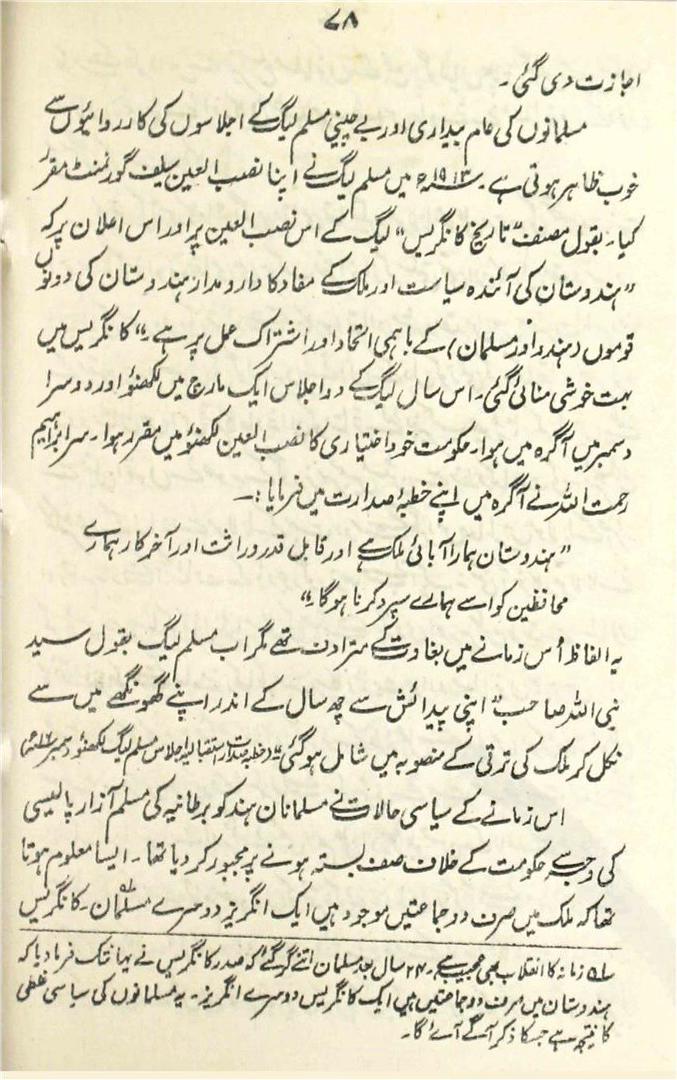 ۷۸
اجازت دی گئی۔
مسلمانوں کی عام بیداری اور بے چینی مسلم لیگ کے اجلاسوں کی کارروائیوں سے
خوب ظاہر ہوتی ہے۔ ۱۹۱۳ء میں مسلم لیگ نے اپنا نصب العین سیلف گورنمنٹ مقرر
کیا۔ بقول مصنف "تاریخ کانگریس" لیگ کے اس نصب العین پر اور اس اعلان پر کہ
"ہندوستان کی آئندہ سیاست اور ملک کے مفاد کا دارومدار ہندوستان کی دونوں
قوموں (ہندو اور مسلمان) کے باہمی اتحاد اور اشتراک عمل پر ہے۔" کانگریس میں
بہت خوشی منائی گئی۔ اس سال لیگ کے دو اجلاس ایک مارچ میں لکھنؤ اور دوسرا
دسمبر میں آگرہ میں ہوا۔ حکومت خود اختیاری کا نصب العین لکھنؤ میں مقرر ہوا۔ سر ابراہیم
رحمت اللہ نے آگرہ میں اپنے خطبۂ صدارت میں فرمایا :۔
"ہندوستان ہمارا آبائی ملک ہے اور قابل قدر وراثت اور آخر کار ہمارے
محافظین کو اسے ہمارے سپرد کرنا ہوگا۔"
یہ الفاظ اُس زمانے میں بغاوت کے مترادف تھے مگر اب مسلم لیگ بقول سید
نبی اللہ صاحب "اپنی پیدائش سے چھ سال کے اندر اپنے گھونگھے میں سے
نکل کر ملک کی ترقی کے منصوبہ میں شامل ہوگئی۔" (خطبہ صدارت استقبالیہ اجلاس مسلم لیگ لکھنؤ دسمبر ۱۶ء)
اس زمانے کے سیاسی حالات نے مسلمانان ہند کو برطانیہ کی مسلم آزار پالیسی
کی وجہ سے حکومت کے خلاف صف بستہ ہونے پر مجبور کر دیا تھا۔ ایسا معلوم ہوتا
تھا کہ ملک میں صرف دو جماعتیں موجود ہیں ایک انگریز دوسرے مسلمان۔ کانگریس
زمانہ کا انقلاب بھی عجیب ہے۔ ۲۴ سال بعد مسلمان اتنے گر گئے کہ صدر کانگریس نے یہانتک فرما دیا کہ
ہندوستان میں صرف دو جماعتیں ہیں ایک کانگریس دوسرے انگریز۔ یہ مسلمانوں کی سیاسی غلطی
کا نتیجہ ہے جسکا ذکر آگے آئے گا۔